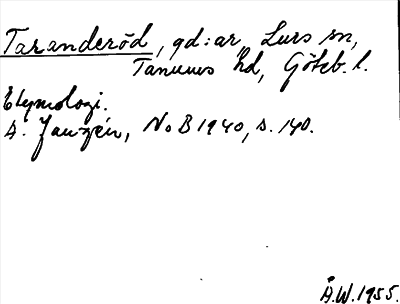 Taranderöd, gd:ar, Lurs sn,
Tanums hd, Göteb. l.
Etymologi.
A. Janzén, NoB 1940, s. 140.
Å.W. 1955.